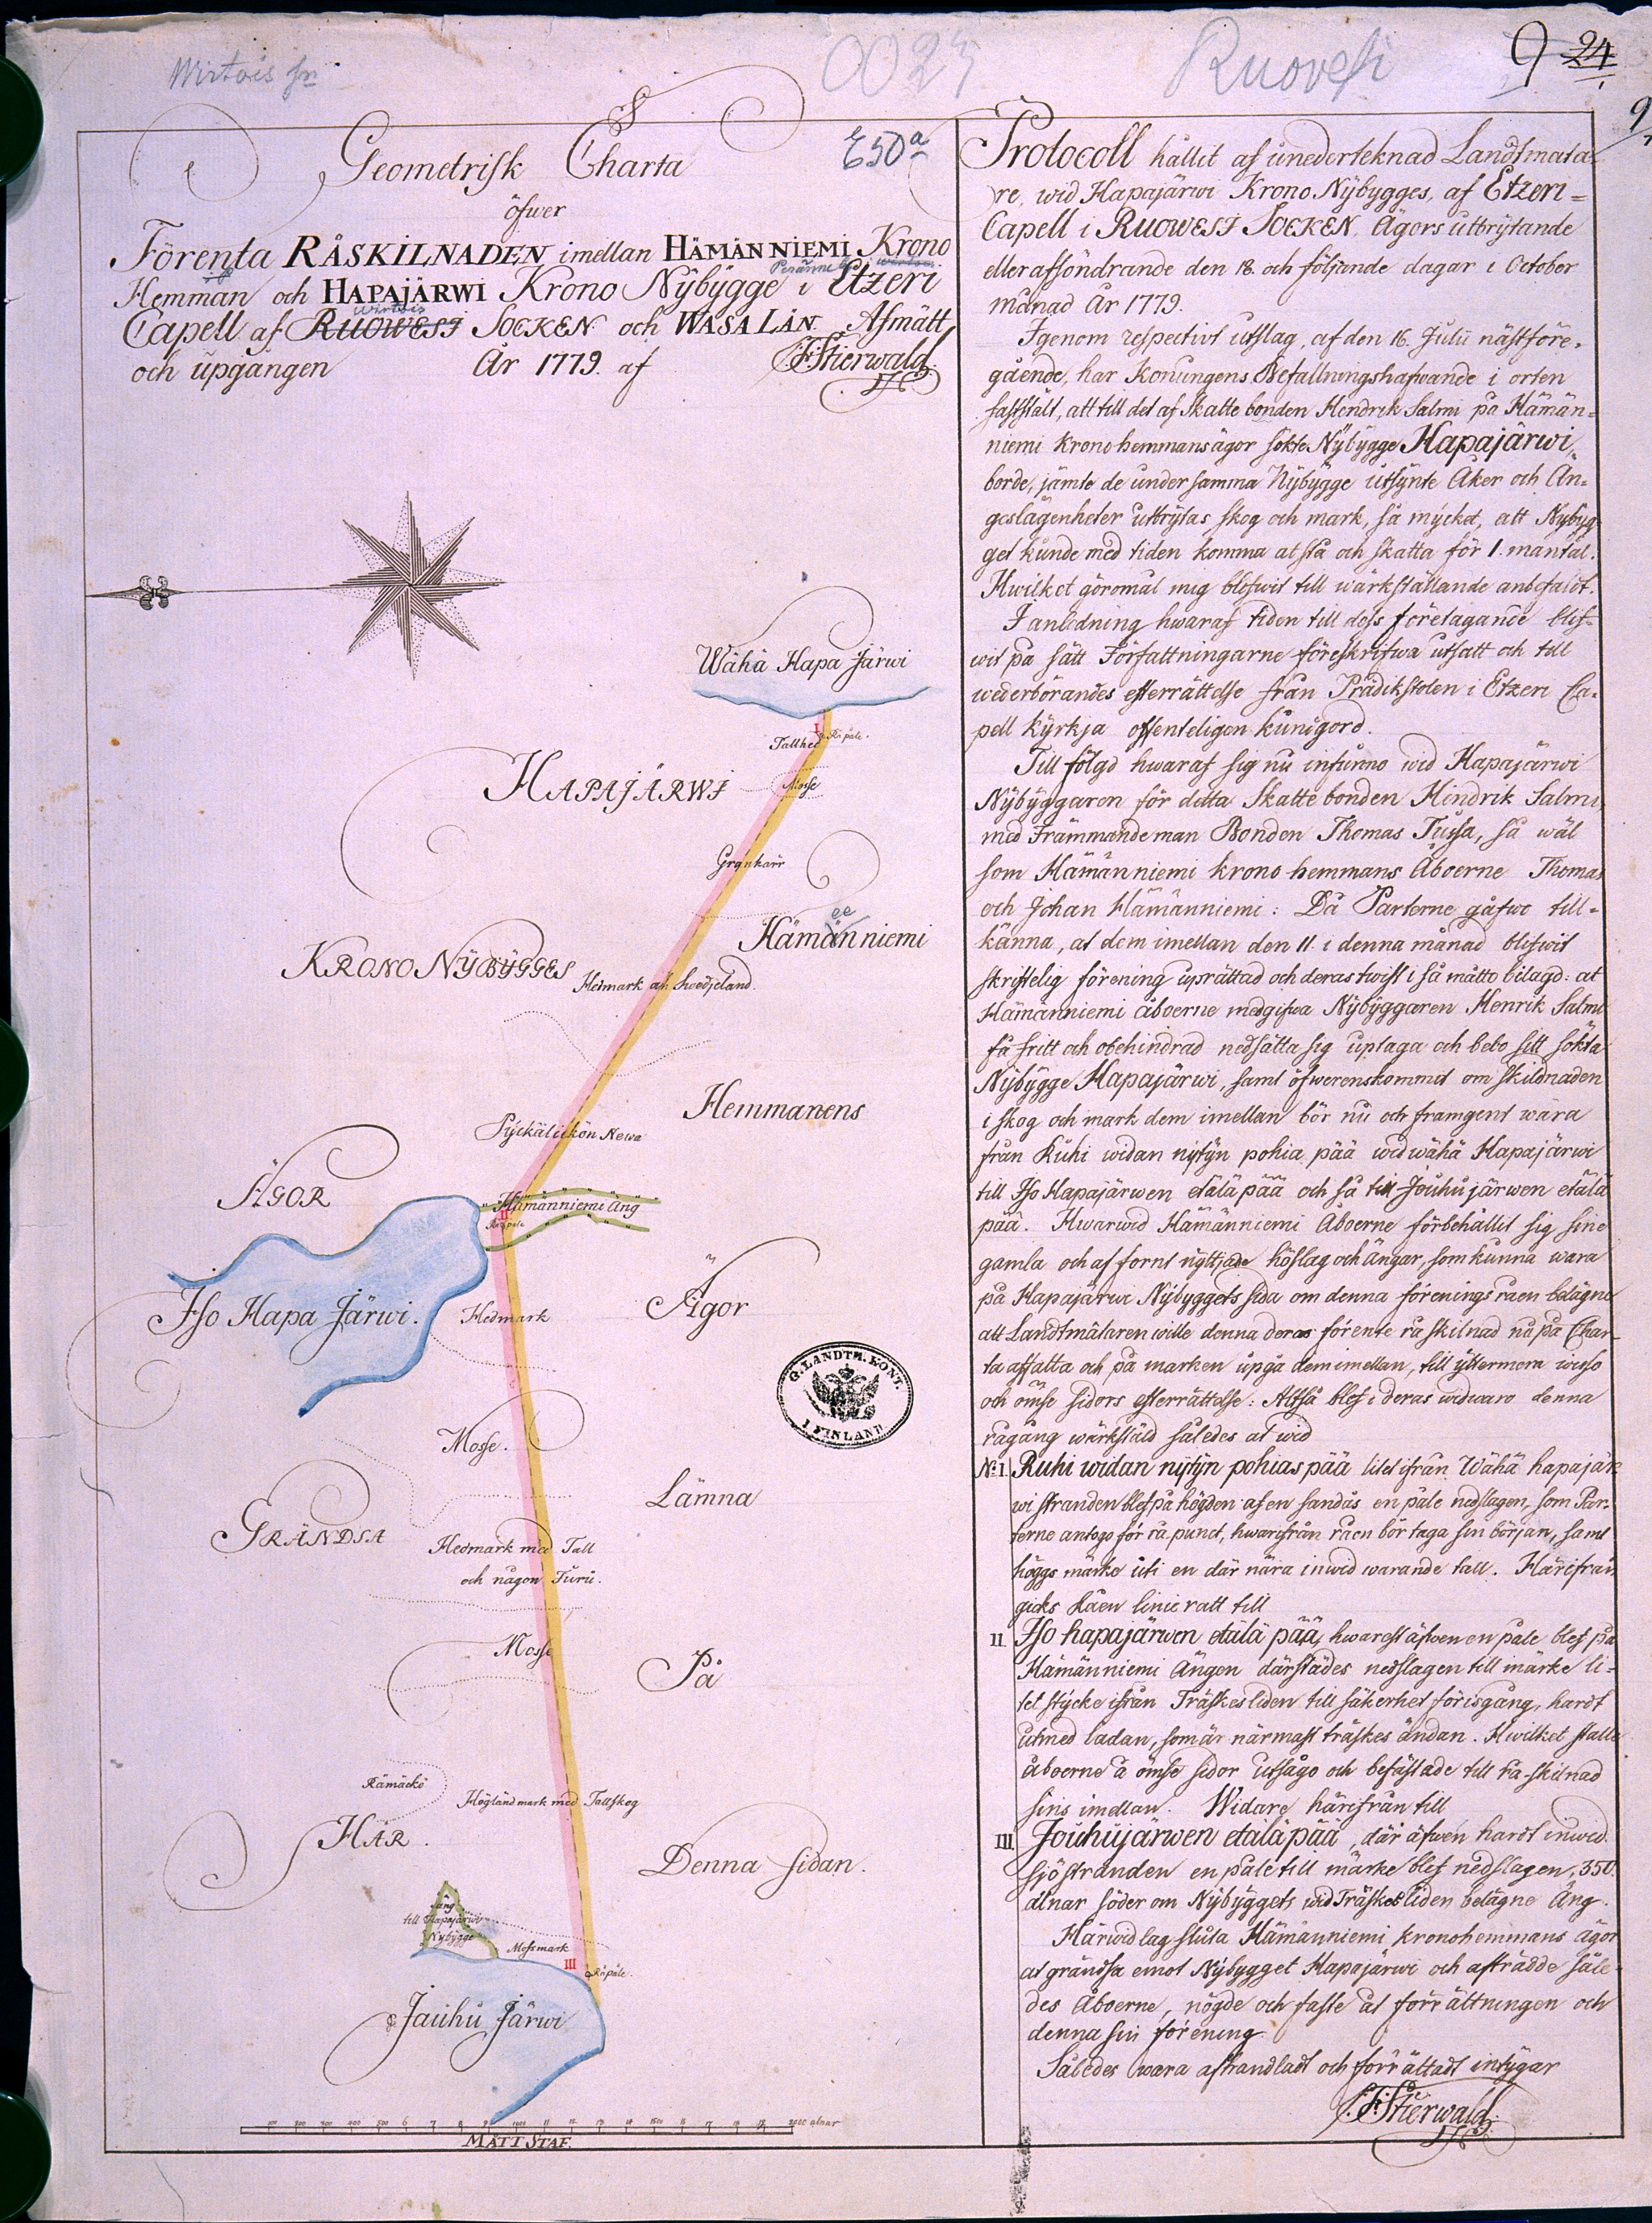 Wirtois sn
0023
Ruovesi
9 24
9/7
E50a
Geometrisk Charta
öfwer
Förenta RÅSKILNADEN imellan HÄMÄNNIEMI Krono
Hemman och HAPAJÄRWI Krono Nÿbÿgge i Etzeri
Wirtois
Capell af RUOWESI SOCKEN och WASA LÄN. Afmätt
och upgången År 1779. af J:F:Stierwald.
Wähä Hapa Järwi
I
Råpåle.
Tallhed
HAPAJÄRWI
Mosse
Grankärr
ee
Hämänniemi
KRONO NŸBŸGGES
Hedmark och Swedjeland.
Hemmanens
Pÿckälickön Newa
ÄGOR
Hämänniemi Äng
II
Råpåle
Iso Hapa Järwi.
Hedmark
Ägor
G. LANDTM. KONT. I FINLAND
Mosse.
Lämna
GRÄNDSA
Hedmark med Tall
och någon Furu.
Mosse
På
Rämäckö
Högländ mark med Tallskog
HÄR.
Denna sidan.
Äng
till Hapajärwi
Nybygge
Mossmark
III
Råpåle.
Jauhu Järwi
100 200 300 400 500 6 7 8 9 1000 11 12 13 14 1500 16 17 18 19 2000 alnar
MÅTT STAF.
Protocoll hållit af unedertecknad Landtmäta-
re, wid Hapajärwi Krono Nÿbÿgges, af Etzeri=
Capell i RUOWESI SOCKEN, Ägors utbrÿtande
eller afsöndrande den 18. och följande dagar i October
månad År 1779.
Igenom respectivt utslag, af den 16. Julii nästföre-
gående, har Konungens Befallningshafwande i orten
fastställt, att till det af Skatte bonden Hendrik Salmi på Hämän=
niemi krono hemmans ägor sökte Nÿbÿgge Hapajärwi,
borde, jämte de under samma Nÿbÿgge utsÿnte Åker och Än=
geslägenheter utbrÿtas skog och mark, så mÿcket, att Nybÿg-
get kunde med tiden komma at stå och skatta för 1. mantal.
Hwilket göromål mig blefwit till wärkställande anbefaldt.
I anledning hwaraf tiden till dess företagande blef-
wit på sätt Författningarne föreskrifwa utsatt och till
wederbörandes efterrättelse från Prädikstolen i Etzeri Ca-
pell kÿrkja offenteligen kungjord.
Till följd hwaraf sig nu infunno wid Hapajärwi
Nÿbÿggaren för detta Skatte bonden Hindrik Salmi,
med Främmande man Bonden Thomas Tussa, så wäl
som Hämänniemi krono hemmans Åboerne Thomas
och Johan Hämänniemi: Då Parterne gåfwo till=
känna, at dem imellan den 11. i denna månad blefwit
skriftelig förening uprättad och deras twist i så måtto bilagd: at
Hämänniemi åboerne medgifwa Nÿbÿggaren Henrik Salmi
få fritt och obehindrad nedsätta sig uptaga och bebo sitt sökta
Nÿbÿgge Hapajärwi, samt öfwerenskommit om skildnaden
i skog och mark dem imellan bör nu och framgent wara
från Ruhi widan nÿtÿn pohia pää wid wähä Hapajärwi
till Iso Hapajärwen etälä pää och så till Jouhujärwen etälä
pää. Hwarwid Hämänniemi Åboerne förbehållit sig sine
gamla och af fornt nÿttjade höslag och Ängar, som kunna wara
på Hapajärwi Nÿbÿggets sida om denna förenings råen belägne
att Landtmätaren wille denna deras förente råskilnad nu på Char-
ta affatta och på marken upgå dem imellan, till ÿttermera wisso
och ömse sidors efterrättelse: Altså blef i deras widwaro denna
rågång wärkstäld således at wid
No: I. Ruhi widan nÿtÿn pohias pää litet ifrån Wähä hapajär-
wi stranden blef på högden af en sandås en påle nedslagen, som Par-
terne antogo för rå punct, hwarifrån råen bör taga sin början, samt
höggs märke uti en där nära inwid warande tall. Härifrån
gicks Råen linie rätt till
II. Iso hapajärwen etälä pää, hwarest äfwen en påle blef på
Hämänniemi Ängen därstädes nedslagen till märke li=
tet stÿcke ifrån Träskesliden till säkerhet för isgång, hardt
utmed ladan, som är närmast träskes ändan. Hwilket ställe
åboerne å ömse sidor utsågo och befästade till råskilnad
sins imellan. Widare härifrån till
III. Jouhujärwen etälä pää, där äfwen hardt inwid
sjöstranden en påle till märke blef nedslagen, 350.
alnar söder om Nÿbÿggets wid Träskesliden belägne Äng.
Härwid lag sluta Hämänniemi kronohemmans ägor
at grändsa emot Nÿbÿgget Hapajärwi och afträdde såle-
des Åboerne, nögde och faste at förrättningen och
denna sin förening
Således wara afhandladt och förrättadt intÿgar
J:F:Stierwald.